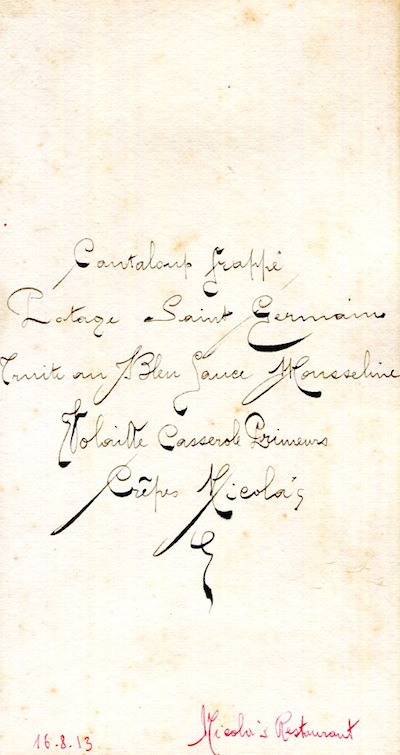 Cantaloup frappé
Potage Saint Germain
Truite au Bleu Sauce Mousseline
Volaille Casserole Primeurs
Crêpes Nicola's
16.8.13
Nicola's Restaurant